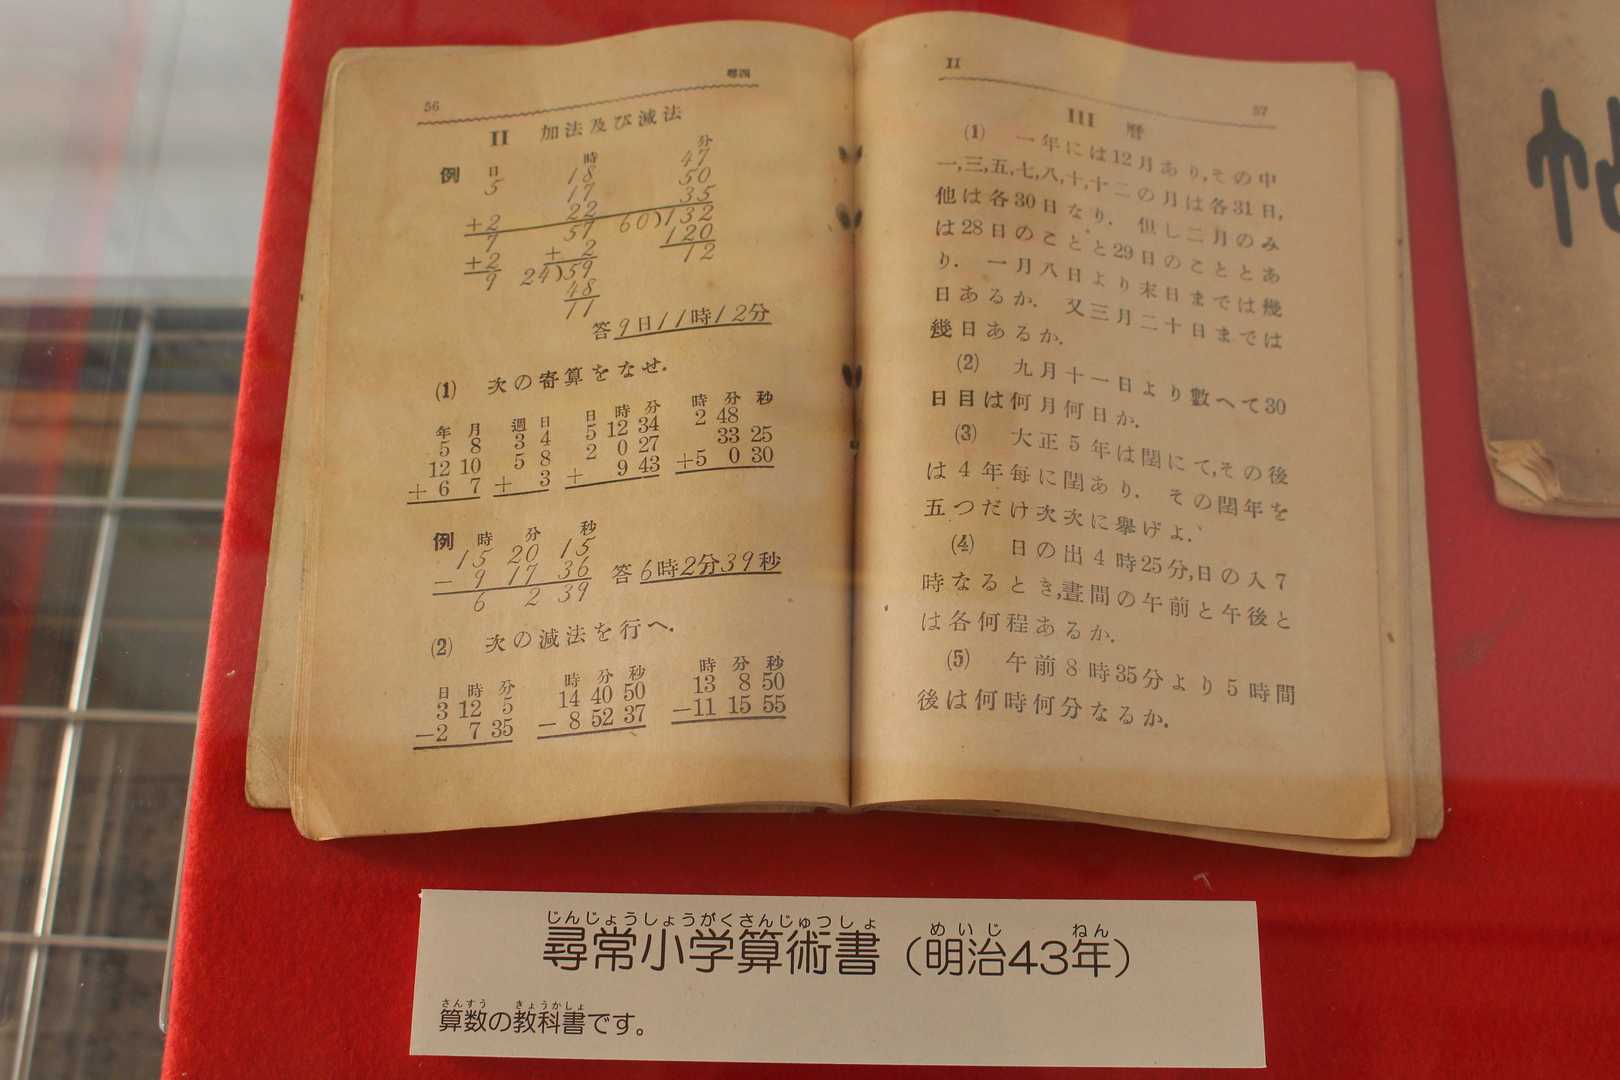 56 尋四
II 加法及び減法
例 日 時 分
47
5 18 50
17 35
+2 22 60)132
7 57 120
+2 + 2 12
9 24)59
48
11
答 9日11時12分
(1) 次の寄算をなせ.
年 月 週 日 日 時 分 時 分 秒
5 8 3 4 5 12 34 2 48
12 10 5 8 2 0 27 33 25
+ 6 7 + 3 + 9 43 +5 0 30
例 時 分 秒
15 20 15
− 9 17 36 答 6時2分39秒
6 2 39
(2) 次の減法を行へ.
日 時 分 時 分 秒 時 分 秒
3 12 5 14 40 50 13 8 50
−2 7 35 − 8 52 37 −11 15 55
II 57
III 暦
(1) 一年には12月あり,その中
一,三,五,七,八,十,十二の月は各31日,
他は各30日なり. 但し二月のみ
は28日のことと29日のこととあ
り. 一月八日より末日までは幾
日あるか. 又三月二十日までは
幾日あるか.
(2) 九月十一日より數へて30
日目は何月何日か.
(3) 大正5年は閏にて,その後
は4年毎に閏あり. その閏年を
五つだけ次次に擧げよ.
(4) 日の出4時25分,日の入7
時なるとき,晝間の午前と午後と
は各何程あるか.
(5) 午前8時35分より5時間
後は何時何分なるか.
じんじょうしょうがくさんじゅつしょ めいじ ねん
尋常小学算術書（明治43年）
さんすう きょうかしょ
算数の教科書です。